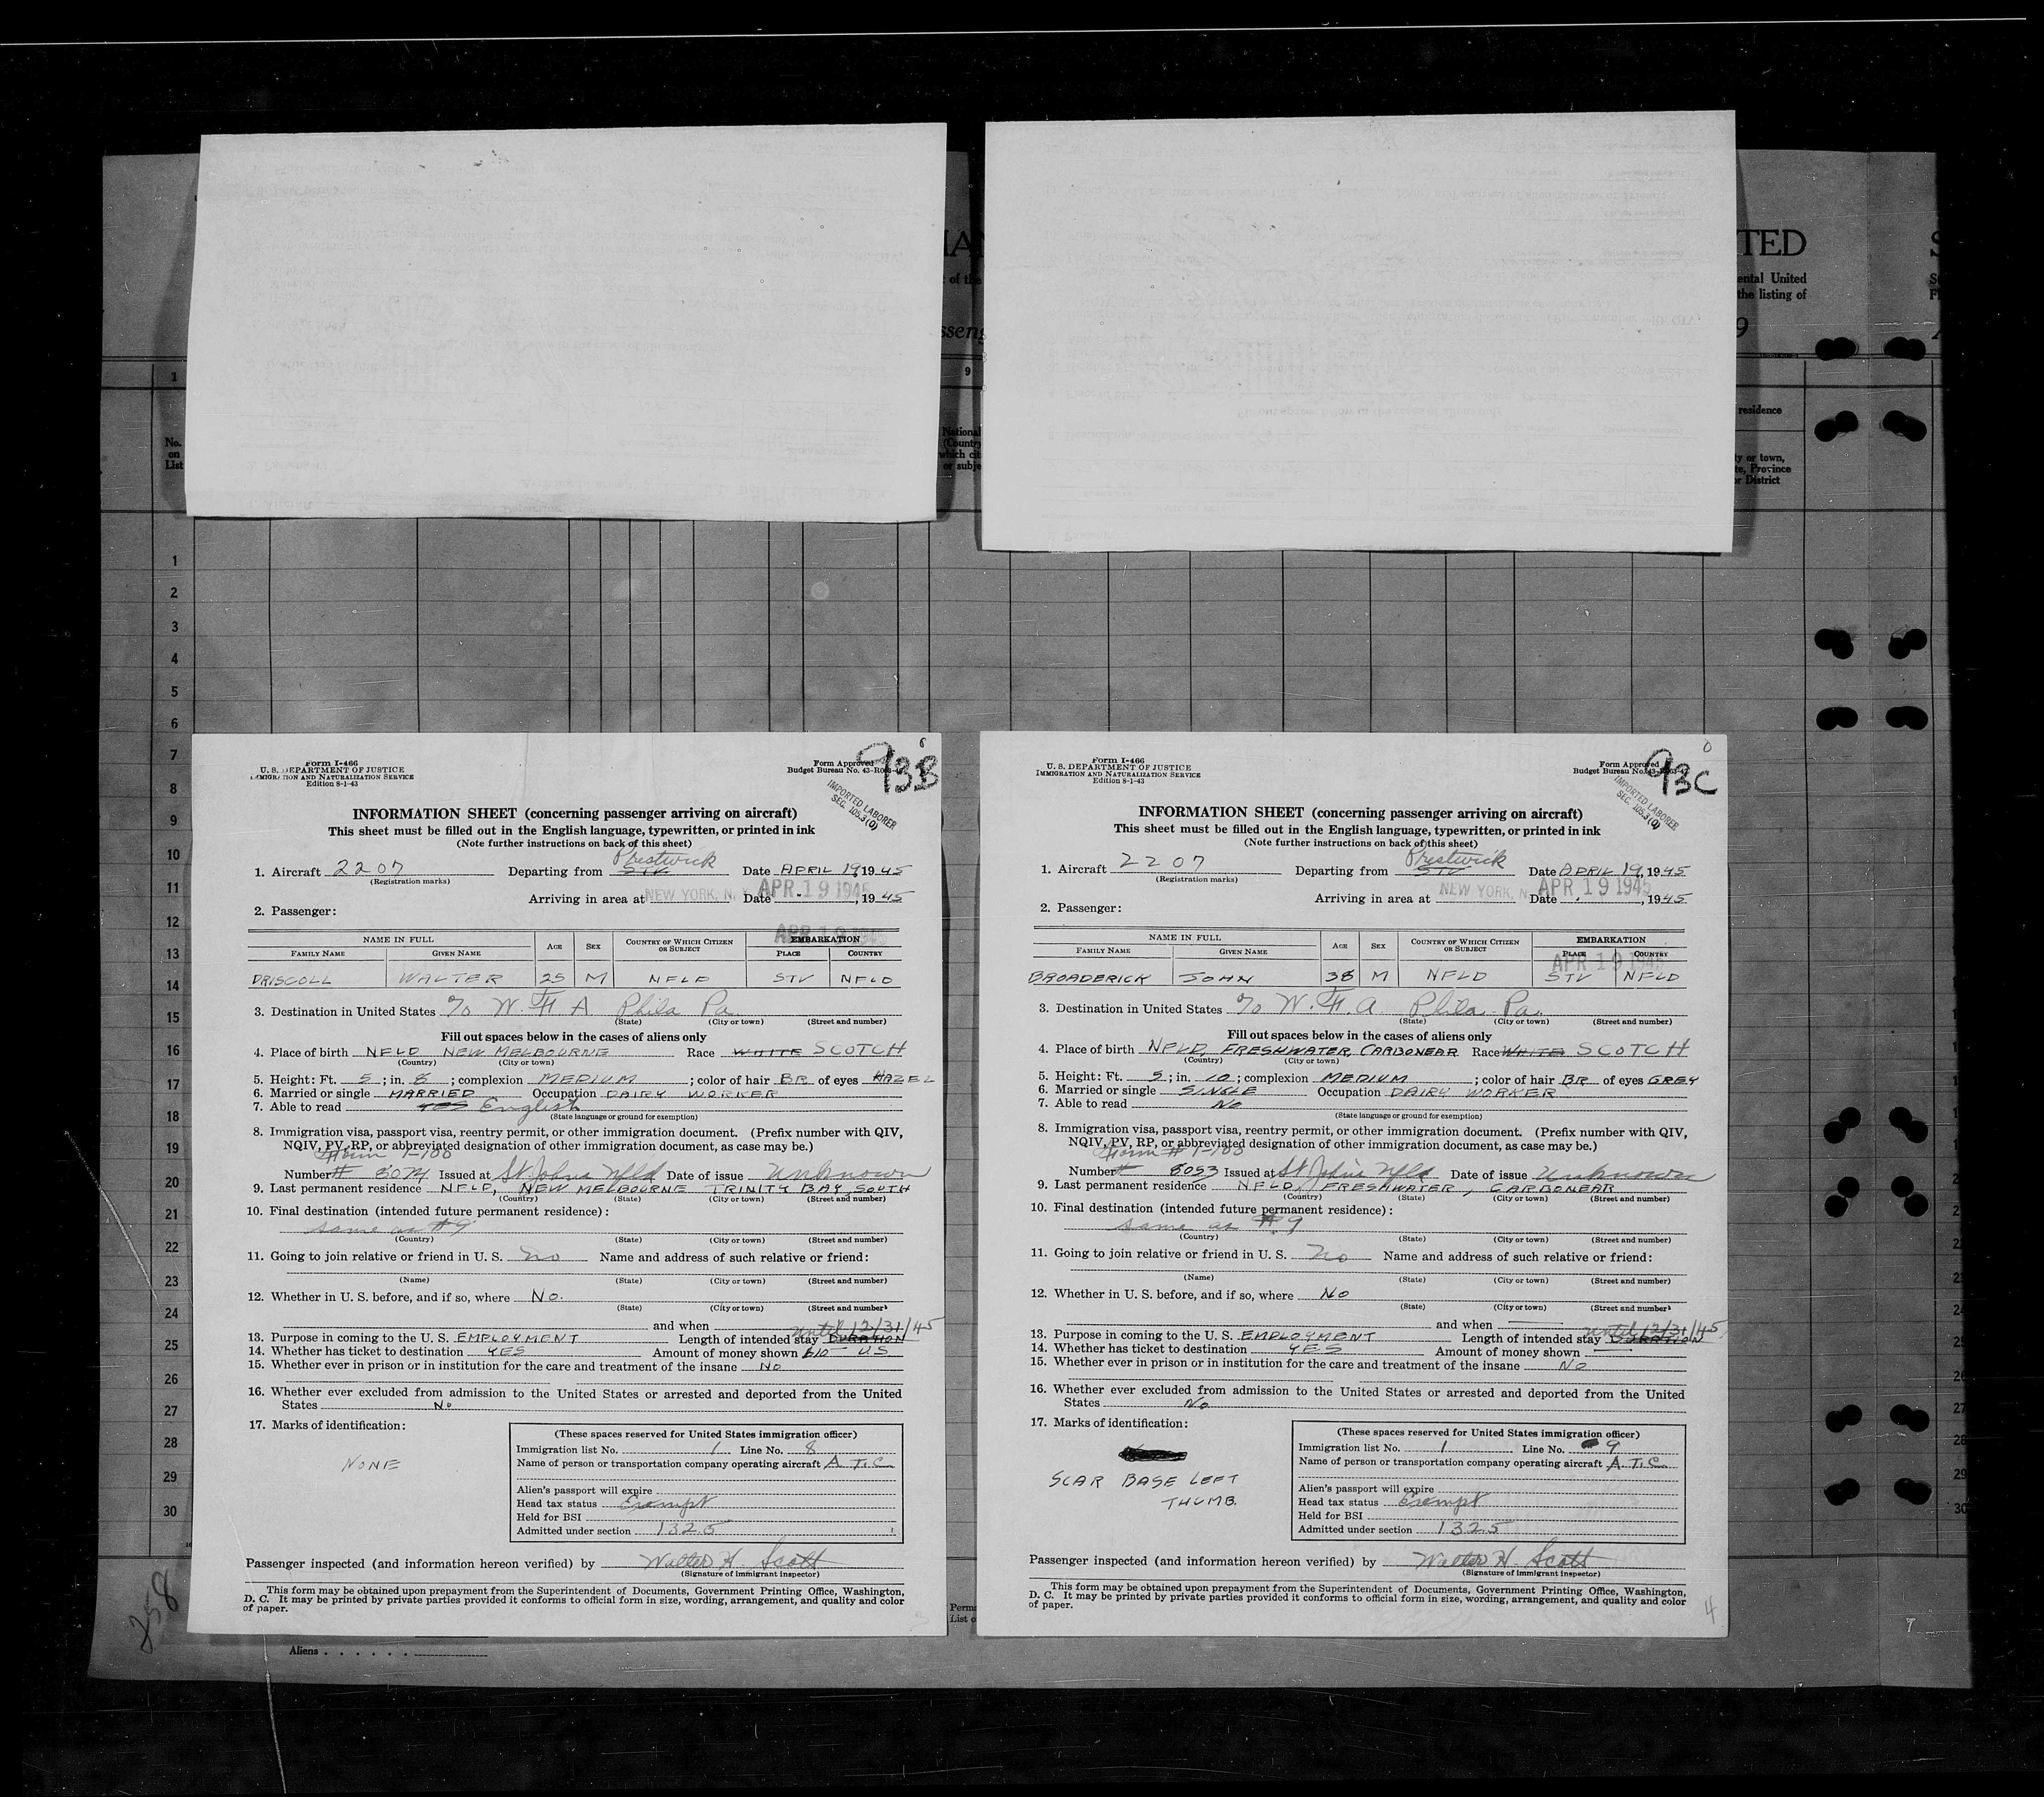 TED
ental United
the listing of
9
1
9
residence
No.
on
List
National
(Country
which cit
or subje
y or town,
te, Province
or District
1
2
3
4
5
6
7
8
9
10
11
12
13
14
15
16
17
18
19
20
21
22
23
24
25
26
27
28
29
30
258
Aliens
Form I-466
U. S. DEPARTMENT OF JUSTICE
IMMIGRATION AND NATURALIZATION SERVICE
Edition 8-1-43
Form Approved
Budget Bureau No. 43-R
93B
IMPORTED LABORER
SEC. 105.3 (Q)
INFORMATION SHEET (concerning passenger arriving on aircraft)
This sheet must be filled out in the English language, typewritten, or printed in ink
(Note further instructions on back of this sheet)
Prestwick
1. Aircraft 2207 Departing from STV Date APRIL 19 1945
(Registration marks)
Arriving in area at NEW YORK, N. Y. Date APR 19 1945, 1945
2. Passenger:
APR 19 1945
NAME IN FULL AGE SEX COUNTRY OF WHICH CITIZEN OR SUBJECT EMBARKATION
FAMILY NAME GIVEN NAME PLACE COUNTRY
DRISCOLL WALTER 25 M NFLD STV NFLD
3. Destination in United States % W. F. A. Phila Pa.
(State) (City or town) (Street and number)
Fill out spaces below in the cases of aliens only
4. Place of birth NFLD NEW MELBOURNE Race WHITE SCOTCH
(Country) (City or town)
5. Height: Ft. 5; in. 8; complexion MEDIUM; color of hair BR of eyes HAZEL
6. Married or single MARRIED Occupation DAIRY WORKER
7. Able to read YES English
(State language or ground for exemption)
8. Immigration visa, passport visa, reentry permit, or other immigration document. (Prefix number with QIV,
NQIV, PV, RP, or abbreviated designation of other immigration document, as case may be.)
Form I-100
Number # 8074 Issued at St. Johns Nfld Date of issue Unknown
9. Last permanent residence NFLD, NEW MELBOURNE TRINITY BAY SOUTH
(Country) (State) (City or town) (Street and number)
10. Final destination (intended future permanent residence):
same as #9
(Country) (State) (City or town) (Street and number)
11. Going to join relative or friend in U. S. no Name and address of such relative or friend:
(Name) (State) (City or town) (Street and number)
12. Whether in U. S. before, and if so, where No.
(State) (City or town) (Street and number)
and when until 12/31/45
13. Purpose in coming to the U. S. EMPLOYMENT Length of intended stay DURATION
14. Whether has ticket to destination YES Amount of money shown $10— U.S
15. Whether ever in prison or in institution for the care and treatment of the insane No
16. Whether ever excluded from admission to the United States or arrested and deported from the United
States No
17. Marks of identification:
NONE
(These spaces reserved for United States immigration officer)
Immigration list No. 1 Line No. 8
Name of person or transportation company operating aircraft A.T.C.
Alien's passport will expire
Head tax status Exempt
Held for BSI
Admitted under section 132.5
Passenger inspected (and information hereon verified) by Walter H. Scott
(Signature of immigrant inspector)
This form may be obtained upon prepayment from the Superintendent of Documents, Government Printing Office, Washington,
D. C. It may be printed by private parties provided it conforms to official form in size, wording, arrangement, and quality and color
of paper.
Form I-466
U. S. DEPARTMENT OF JUSTICE
IMMIGRATION AND NATURALIZATION SERVICE
Edition 8-1-43
Form Approved
Budget Bureau No. 43-R
93C
IMPORTED LABORER
SEC. 105.3 (Q)
INFORMATION SHEET (concerning passenger arriving on aircraft)
This sheet must be filled out in the English language, typewritten, or printed in ink
(Note further instructions on back of this sheet)
Prestwick
1. Aircraft 2207 Departing from STV Date APRIL 19, 1945
(Registration marks)
Arriving in area at NEW YORK, N. Date APR 19 1945, 1945
2. Passenger:
NAME IN FULL AGE SEX COUNTRY OF WHICH CITIZEN OR SUBJECT EMBARKATION
FAMILY NAME GIVEN NAME PLACE COUNTRY
APR 19 1945
BROADERICK JOHN 38 M NFLD STV NFLD
3. Destination in United States % W. F. A. Phila. Pa.
(State) (City or town) (Street and number)
Fill out spaces below in the cases of aliens only
4. Place of birth NFLD, FRESHWATER, CARBONEAR Race WHITE SCOTCH
(Country) (City or town)
5. Height: Ft. 5; in. 10; complexion MEDIUM; color of hair BR of eyes GREY
6. Married or single SINGLE Occupation DAIRY WORKER
7. Able to read No
(State language or ground for exemption)
8. Immigration visa, passport visa, reentry permit, or other immigration document. (Prefix number with QIV,
NQIV, PV, RP, or abbreviated designation of other immigration document, as case may be.)
Form # I-100
Number # 8053 Issued at St Johns Nfld Date of issue Unknown
9. Last permanent residence NFLD, FRESHWATER, CARBONEAR
(Country) (State) (City or town) (Street and number)
10. Final destination (intended future permanent residence):
same as #9
(Country) (State) (City or town) (Street and number)
11. Going to join relative or friend in U. S. no Name and address of such relative or friend:
(Name) (State) (City or town) (Street and number)
12. Whether in U. S. before, and if so, where No
(State) (City or town) (Street and number)
and when — until 12/31/45
13. Purpose in coming to the U. S. EMPLOYMENT Length of intended stay DURATION
14. Whether has ticket to destination YES Amount of money shown —
15. Whether ever in prison or in institution for the care and treatment of the insane No
16. Whether ever excluded from admission to the United States or arrested and deported from the United
States No
17. Marks of identification:
SCAR BASE LEFT
THUMB.
(These spaces reserved for United States immigration officer)
Immigration list No. 1 Line No. 9
Name of person or transportation company operating aircraft A.T.C.
Alien's passport will expire
Head tax status Exempt
Held for BSI
Admitted under section 132.5
Passenger inspected (and information hereon verified) by Walter H. Scott
(Signature of immigrant inspector)
This form may be obtained upon prepayment from the Superintendent of Documents, Government Printing Office, Washington,
D. C. It may be printed by private parties provided it conforms to official form in size, wording, arrangement, and quality and color
of paper.
4
7